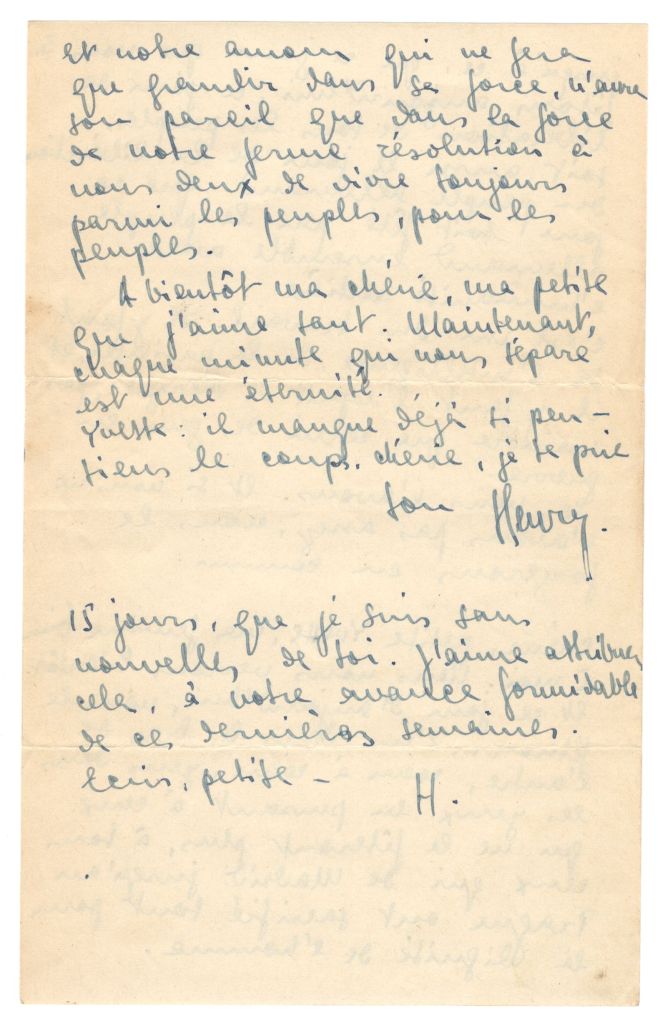 et notre amour qui ne fera
que grandir dans sa force, n'aura
son pareil que dans la force
de notre ferme résolution à
nous deux de vivre toujours
parmi les peuples, pour les
peuples.
A bientôt ma chérie, ma petite
que j'aime tant. Maintenant,
chaque minute qui nous sépare
est une éternité.
Yvette: il manque déjà si peu –
tiens le coup, chérie, je te prie
ton Henry.
15 jours, que je suis sans
nouvelles de toi. J'aime attribuer
cela, à notre avance formidable
de ces dernières semaines.
Ecris, petite – H.